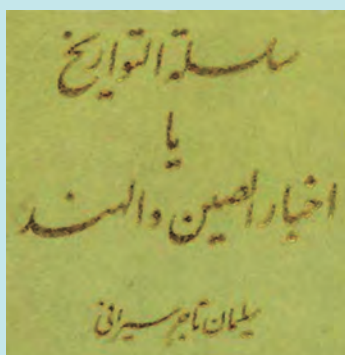 سلسلة التواریخ
یا
اخبار الصین والهند
سلیمان تاجر سیرافی